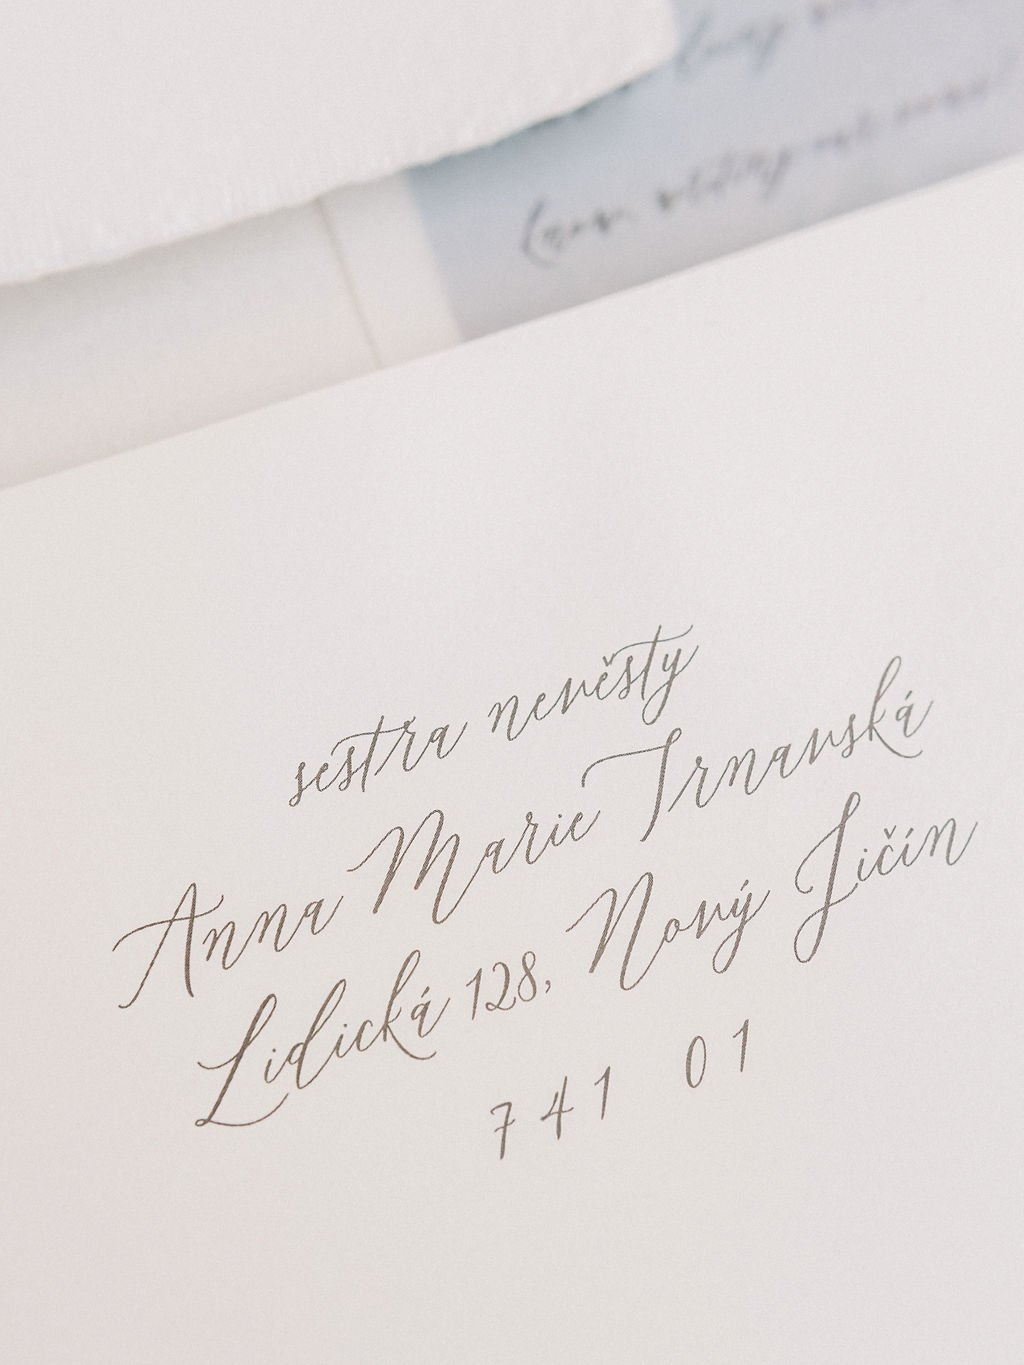 sestra nevěsty
Anna Marie Trnavská
Lidická 128, Nový Jičín
741 01